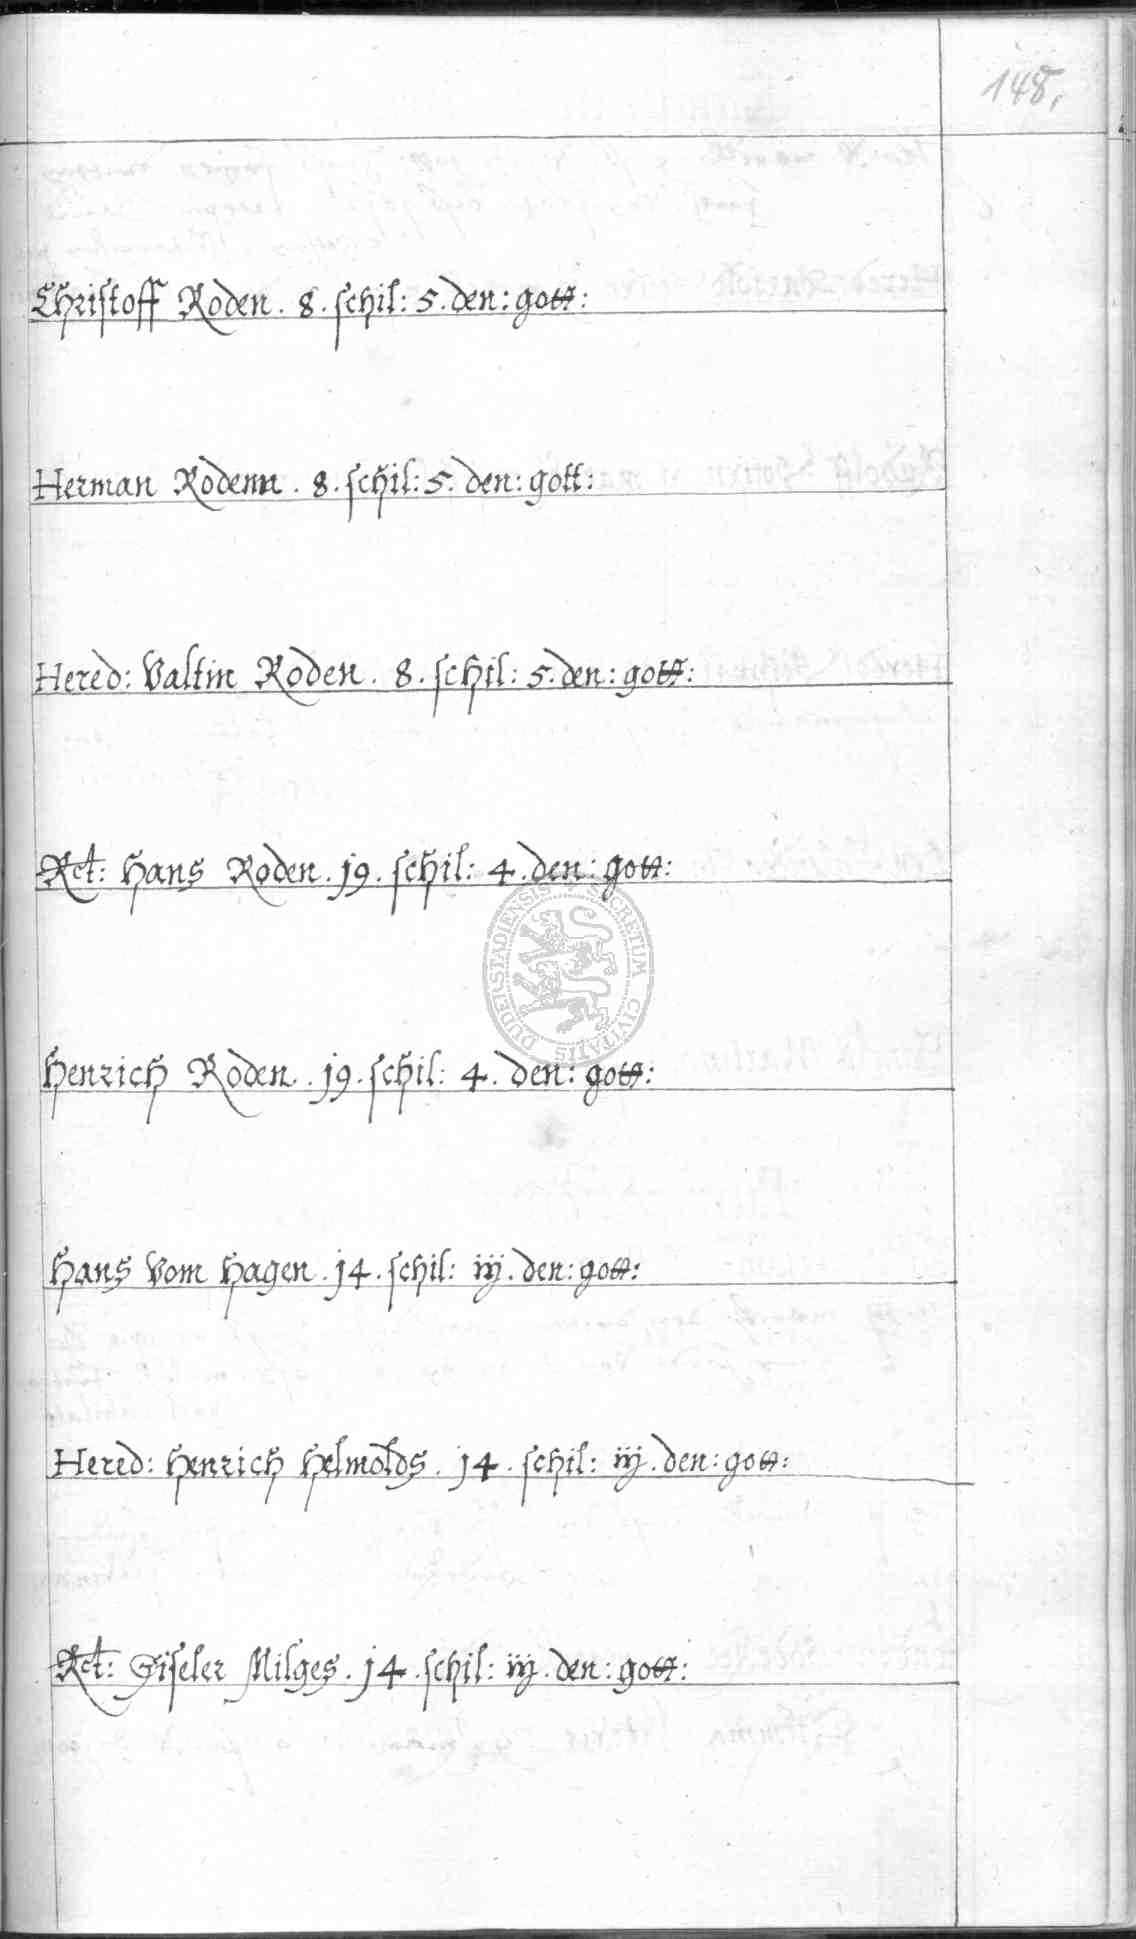 148.
Christoff Roden . 8 . schil: 5 . den: gott:
Herman Rodenn . 8 . schil: 5 . den: gott:
Hered: Valtin Roden . 8 . schil: 5 . den: gott:
Rct: Hans Roden . 19 . schil: 4 . den: gott:
SECRETUM CIVITATIS DUDERSTADIENSIS
Henrich Roden . 19 . schil: 4 . den: gott:
Hans Vom Hagen . 14 . schil: iij . den: gott:
Hered: Henrich Helmolds . 14 . schil: iij . den: gott:
Rct: Giseler Milges . 14 . schil: iij . den: gott: